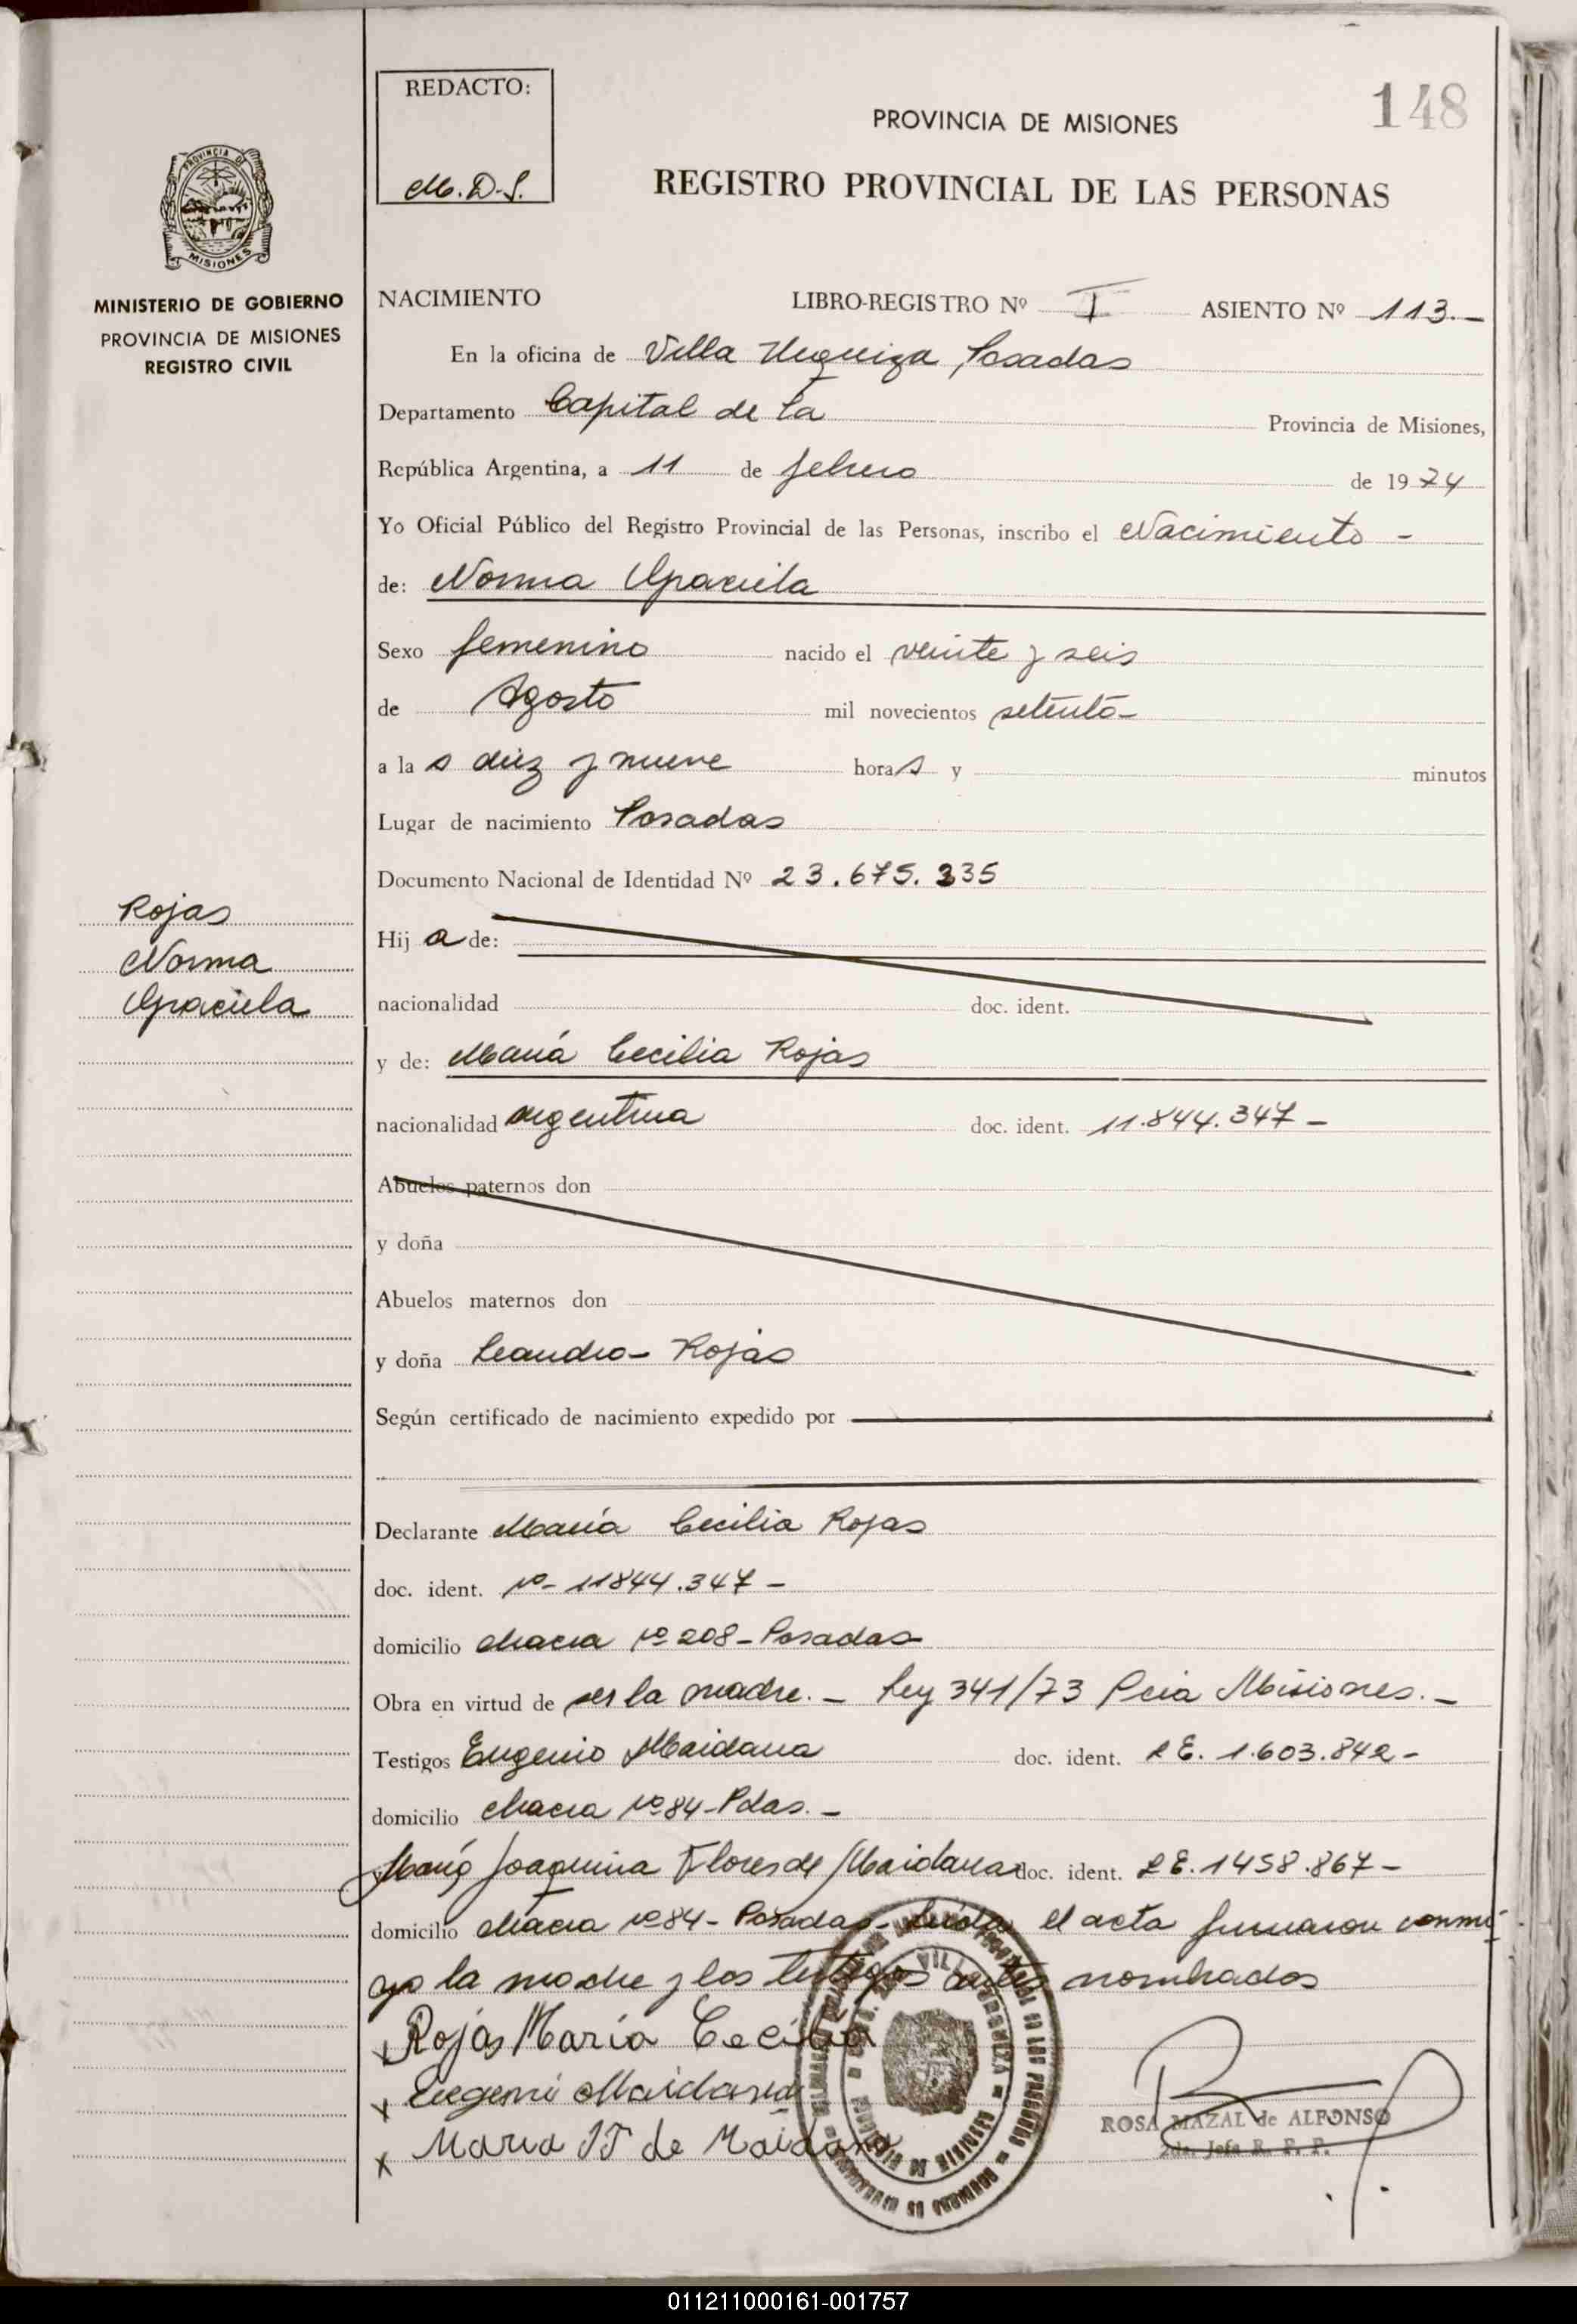 148
REDACTO:
M. D. S.
PROVINCIA DE MISIONES
REGISTRO PROVINCIAL DE LAS PERSONAS
PROVINCIA DE
MISIONES
MINISTERIO DE GOBIERNO
PROVINCIA DE MISIONES
REGISTRO CIVIL
NACIMIENTO LIBRO-REGISTRO Nº I ASIENTO Nº 113.-
En la oficina de Villa Urquiza Posadas
Departamento Capital de la Provincia de Misiones,
República Argentina, a 11 de febrero de 1974
Yo Oficial Público del Registro Provincial de las Personas, inscribo el Nacimiento -
de: Norma Graciela
Sexo femenino nacido el veinte y seis
de Agosto mil novecientos setenta-
a las diez y nueve horas y minutos
Lugar de nacimiento Posadas
Documento Nacional de Identidad Nº 23.675.335
Rojas
Norma
Graciela
Hija de:
nacionalidad doc. ident.
y de: María Cecilia Rojas
nacionalidad argentina doc. ident. 11.844.347-
Abuelos paternos don
y doña
Abuelos maternos don
y doña Leandro- Rojas
Según certificado de nacimiento expedido por
Declarante María Cecilia Rojas
doc. ident. Nº- 11844.347-
domicilio chacra Nº 208-Posadas
Obra en virtud de ser la madre.- Ley 341/73 Pcia Misiones.-
Testigos Eugenio Maidana doc. ident. LE. 1.603.842-
domicilio chacra Nº 84-Pdas.-
y María Joaquina Flores de Maidana doc. ident. LE. 1458.867-
domicilio chacra Nº 84- Posadas- Leída el acta firmaron conmi-
go la madre y los testigos antes nombrados
x Rojas María Cecilia
x Eugenio Maidana
x Maria JF de Maidana
ROSA MAZAL de ALFONSO
2da. Jefa R. P. P.
011211000161-001757